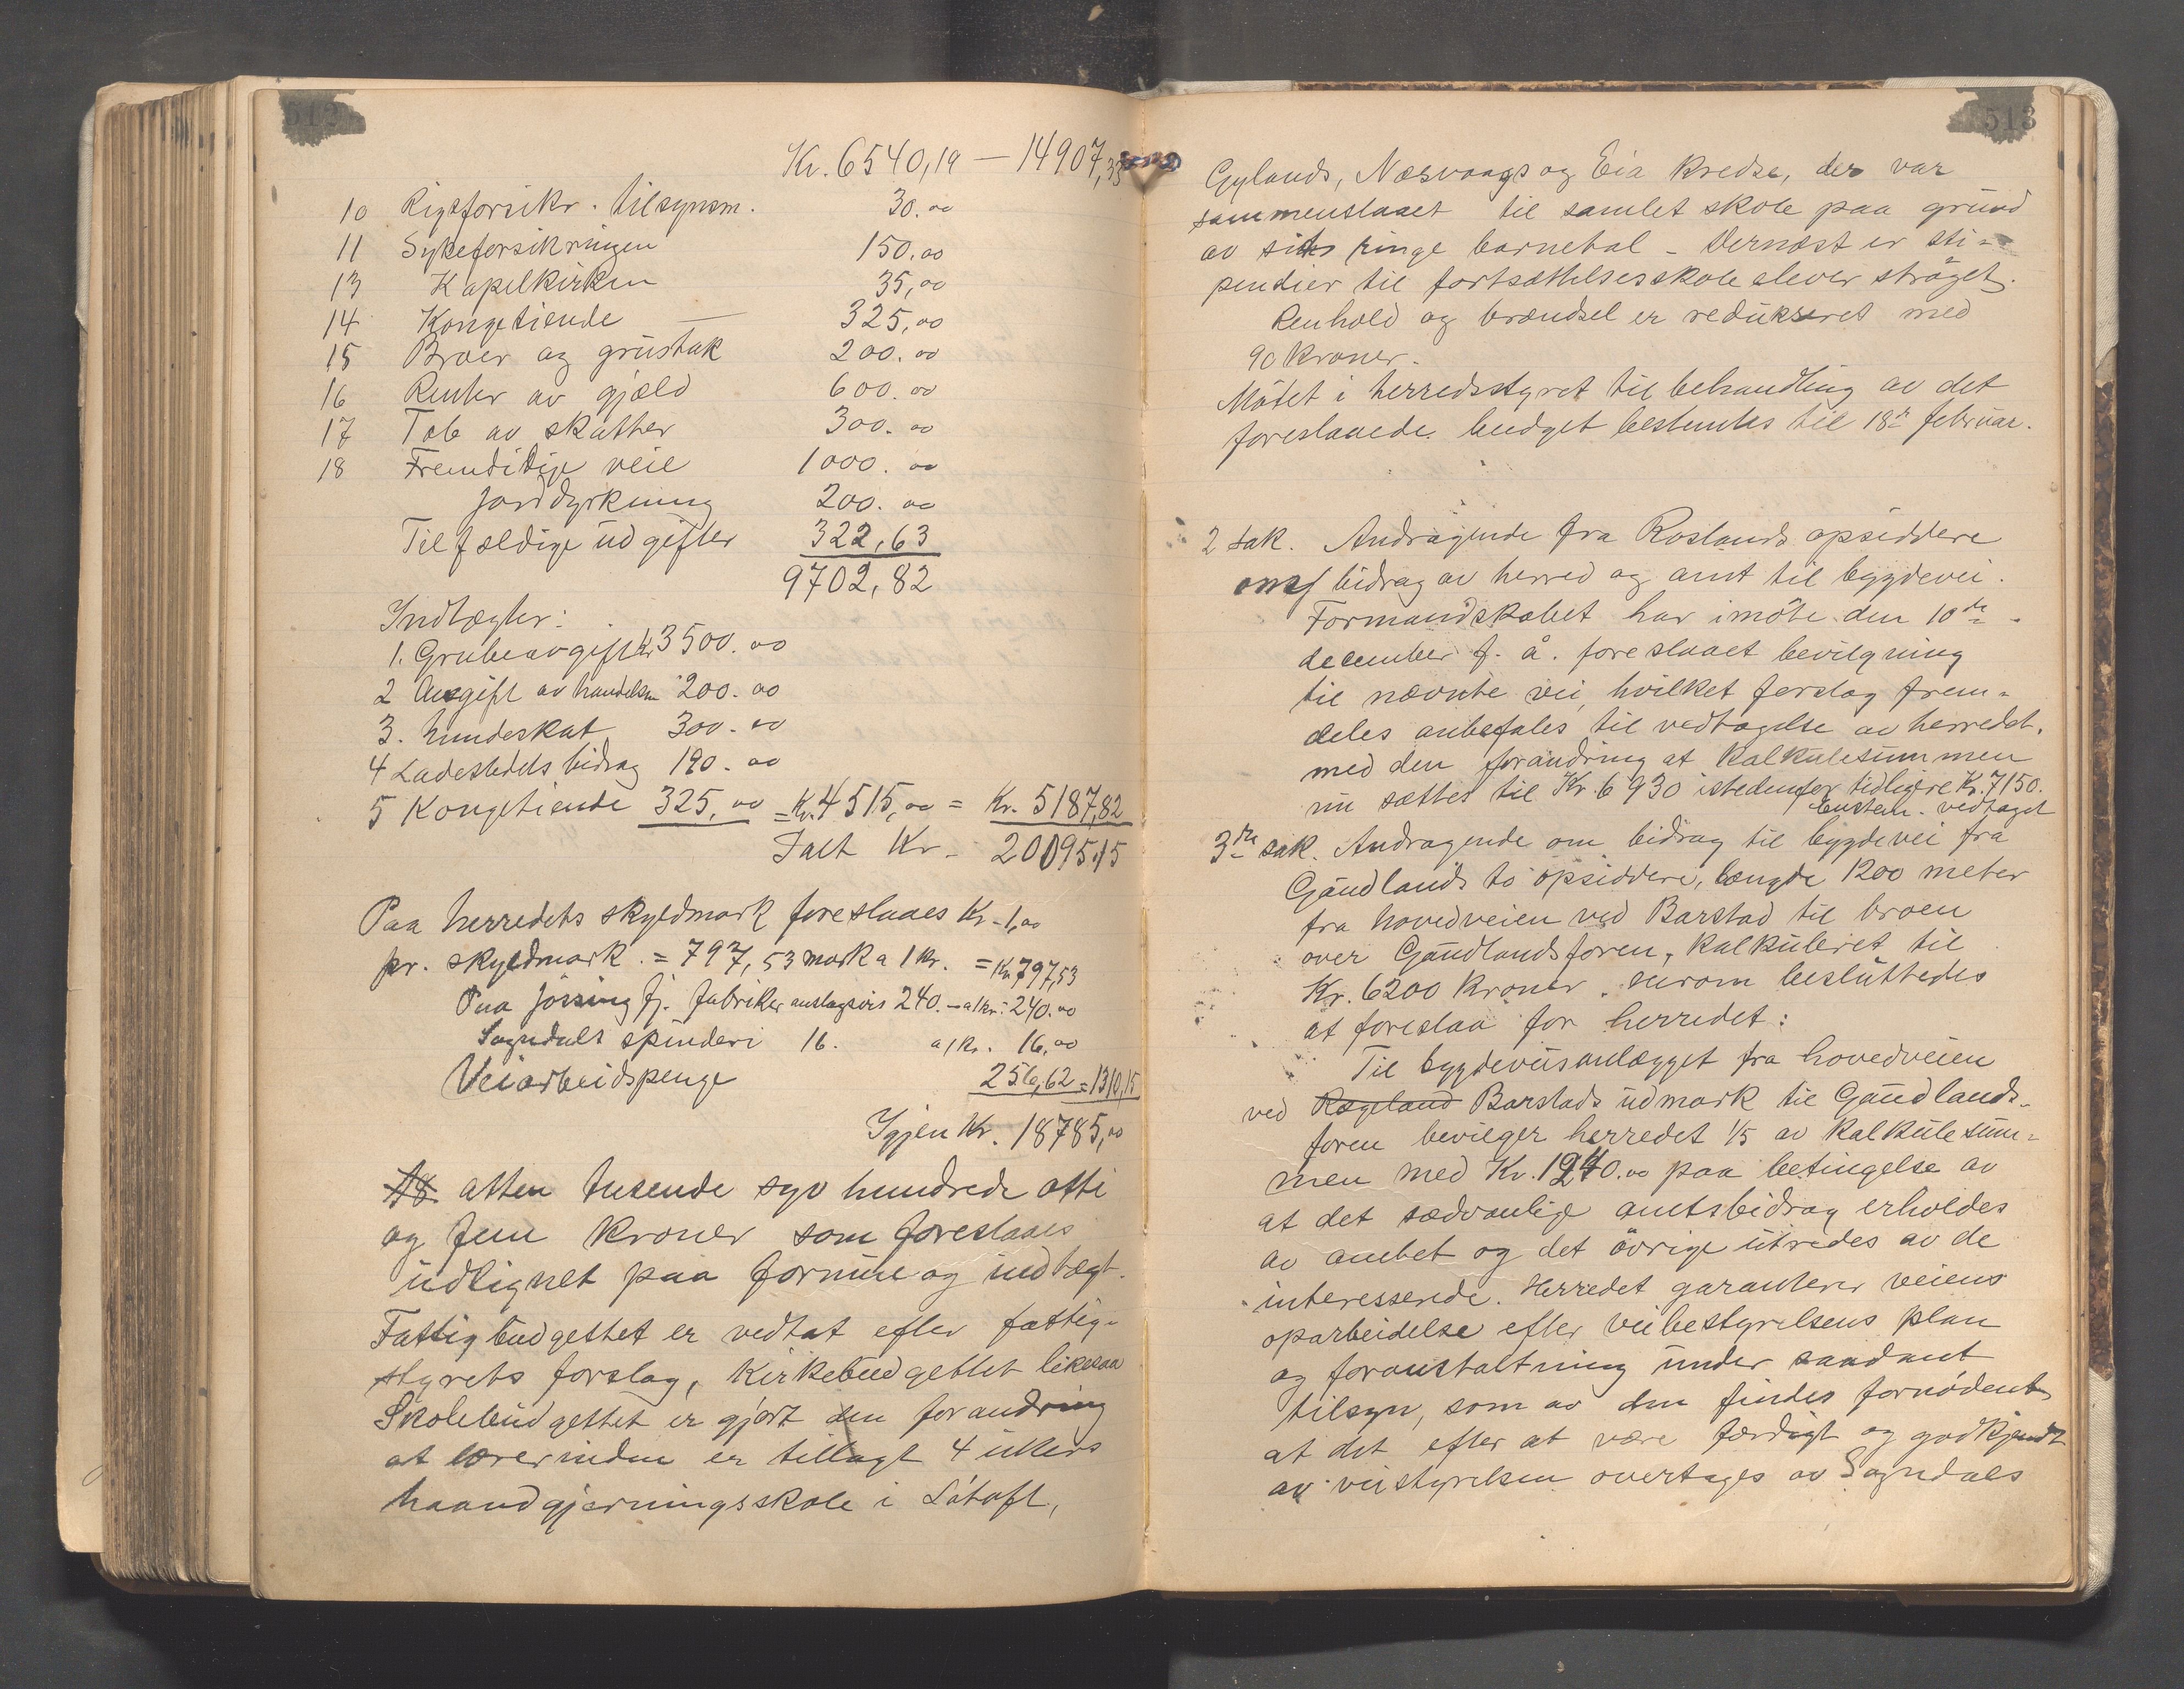 512
Kr. 6540,19 — 14907,33
10 Rigsforsikr. tilsynsm. 30.00
11 Sykeforsikringen 150.00
13 Kapelkirken 35,00
14 Kongetiende — 325,00
15 Broer og grustak 200.00
16 Renter av gjæld 600.00
17 Tab av skatter 300.00
18 Fremtidige veie 1000.00
jorddyrkning 200.00
Tilfældige udgifter 322,63
9702,82
Indtægter:
1. Grubeavgift kr 3500.00
2 Avgift av handelsm 200.00
3. hundeskat 300.00
4 Ladestedets bidrag 190.00
5 Kongetiende 325,00 = Kr. 4515,00 = Kr. 5187,82
Ialt Kr. 20095.15
Paa herredets skyldmark foreslaaes Kr. 1,00
pr. skyldmark. = 797,53 mark a 1 kr. = Kr. 797,53
Paa Jøssing fj. fabriker anslagsvis 240. — a 1 kr: 240.00
Sogndals spinderi 16. a 1 kr. 16,00
Veiarbeidspenge 256,62 = 1310,15
Igjen Kr. 18785,00
18 atten tusende syv hundrede otti
og fem kroner som foreslaaes
udlignet paa formue og indtægt.
Fattigbudgettet er vedtat efter fattig-
styrets forslag, Kirkebudgettet likesaa
Skolebudgettet er gjort den forandring
at lærerinden er tillagt 4 ukers
haandgjerningsskole i Låtoft,
513
Gylands, Næsvaags og Eia Kredse, der var
sammenslaaet til samlet skole paa grund
av sit ringe barnetal - Dernæst er sti-
pendier til fortsættelsesskole elever strøget.
Renhold og brændsel er redukseret med
90 kroner.
Møtet i herredsstyret til behandling av det
foreslaaede budget bestemtes til 18de februar.
2 sak. Andragende fra Roslands opsiddere
om bidrag av herred og amt til bygdevei.
Formandskabet har i møte den 10de
december f. å. foreslaaet bevilgning
til nævnte vei, hvilket forslag frem-
deles anbefales til vedtagelse av herredst.
med den forandring at kalkulesummen
nu sættes til Kr. 6930 istedenfor tidligere Kr. 7150.
Enstem. vedtaget
3die sak. Andragende om bidrag til bygdevei fra
Gaudlands to opsiddere, længde 1200 meter
fra hovedveien ved Barstad til broen
over Gaudlandsforen, kalkuleret til
Kr. 6200 kroner. herom besluttedes
at foreslaa for herredet:
Til bygdeveisanlægget fra hovedveien
ved Rægeland Barstads udmark til Gaudlands-
foren bevilger herredet 1/5 av kalkulesum-
men med Kr. 1240.00 paa betingelse av
at det sædvanlige amtsbidrag erholdes
av amtet og det øvrige utredes av de
interesserede. Herredet garanterer veiens
oparbeidelse efter veibestyrelsens plan
og foranstaltning under saadant
tilsyn, som av den findes fornødent
at det efter at være færdigt og godkjendt
av veistyrelsen overtages av Sogndals